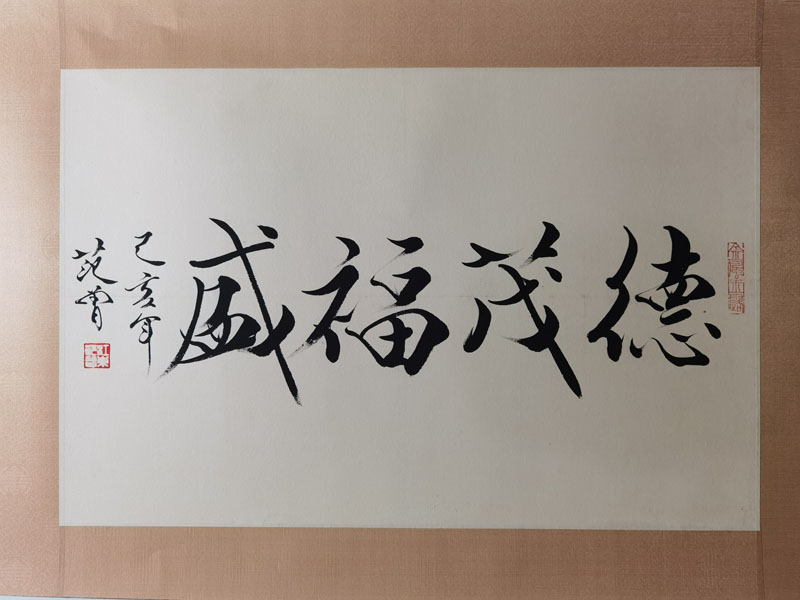 德茂福盛
己亥年
范曾